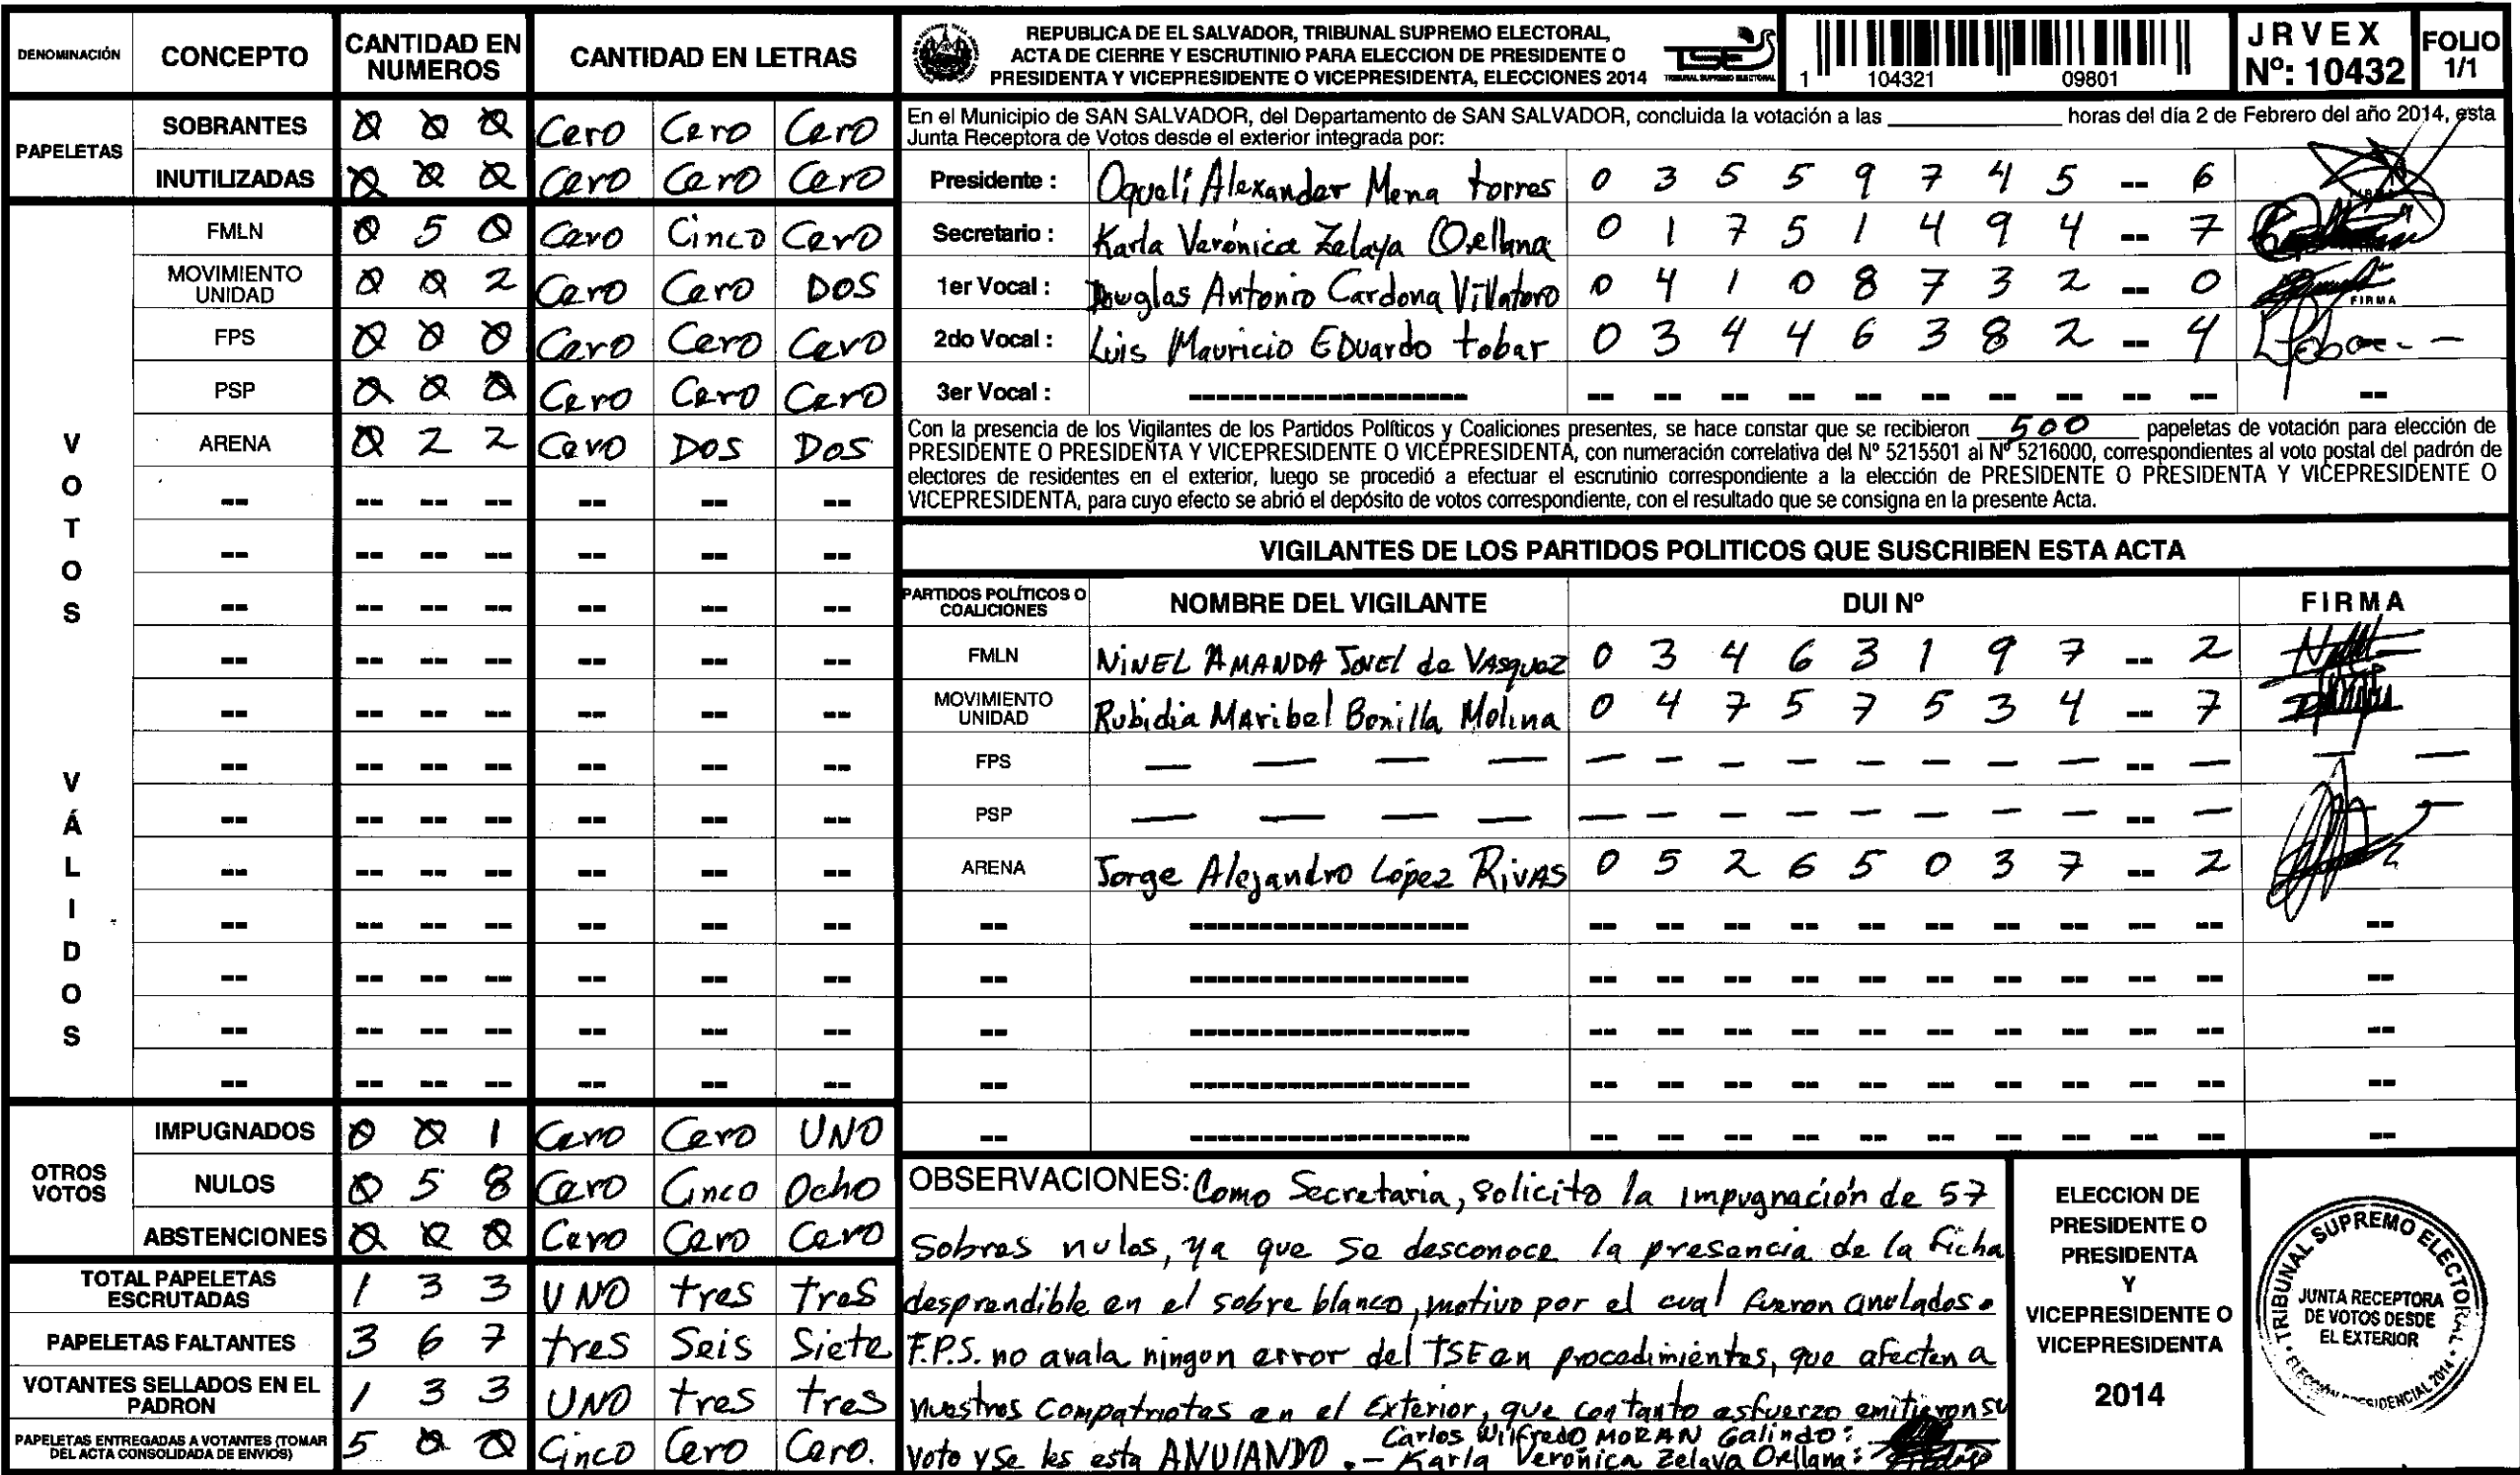 DENOMINACIÓN CONCEPTO CANTIDAD EN NUMEROS CANTIDAD EN LETRAS
PAPELETAS
SOBRANTES 0 0 0 Cero Cero Cero
INUTILIZADAS 0 0 0 Cero Cero Cero
VOTOS VÁLIDOS
FMLN 0 5 0 Cero Cinco Cero
MOVIMIENTO UNIDAD 0 0 2 Cero Cero DOS
FPS 0 0 0 Cero Cero Cero
PSP 0 0 0 Cero Cero Cero
ARENA 0 2 2 Cero DOS DOS
-- -- -- -- -- -- --
-- -- -- -- -- -- --
-- -- -- -- -- -- --
-- -- -- -- -- -- --
-- -- -- -- -- -- --
-- -- -- -- -- -- --
-- -- -- -- -- -- --
-- -- -- -- -- -- --
-- -- -- -- -- -- --
-- -- -- -- -- -- --
-- -- -- -- -- -- --
-- -- -- -- -- -- --
OTROS VOTOS
IMPUGNADOS 0 0 1 Cero Cero UNO
NULOS 0 5 8 Cero Cinco Ocho
ABSTENCIONES 0 0 0 Cero Cero Cero
TOTAL PAPELETAS ESCRUTADAS 1 3 3 UNO tres tres
PAPELETAS FALTANTES 3 6 7 tres Seis Siete
VOTANTES SELLADOS EN EL PADRON 1 3 3 UNO tres tres
PAPELETAS ENTREGADAS A VOTANTES (TOMAR DEL ACTA CONSOLIDADA DE ENVIOS) 5 0 0 Cinco Cero Cero.
REPUBLICA DE EL SALVADOR, TRIBUNAL SUPREMO ELECTORAL,
ACTA DE CIERRE Y ESCRUTINIO PARA ELECCION DE PRESIDENTE O
PRESIDENTA Y VICEPRESIDENTE O VICEPRESIDENTA, ELECCIONES 2014
TSE
TRIBUNAL SUPREMO ELECTORAL
1 104321 09801
JRVEX
Nº: 10432
FOLIO
1/1
En el Municipio de SAN SALVADOR, del Departamento de SAN SALVADOR, concluida la votación a las ____ horas del día 2 de Febrero del año 2014, esta
Junta Receptora de Votos desde el exterior integrada por:
Presidente : Oqueli Alexander Mena torres 0 3 5 5 9 7 4 5 -- 6
Secretario : Karla Verónica Zelaya Orellana 0 1 7 5 1 4 9 4 -- 7
1er Vocal : Douglas Antonio Cardona Villatoro 0 4 1 0 8 7 3 2 -- 0 FIRMA
2do Vocal : Luis Mauricio EDuardo tobar 0 3 4 4 6 3 8 2 -- 4
3er Vocal : -------------------- -- -- -- -- -- -- -- -- -- -- --
Con la presencia de los Vigilantes de los Partidos Políticos y Coaliciones presentes, se hace constar que se recibieron 500 papeletas de votación para elección de
PRESIDENTE O PRESIDENTA Y VICEPRESIDENTE O VICEPRESIDENTA, con numeración correlativa del Nº 5215501 al Nº 5216000, correspondientes al voto postal del padrón de
electores de residentes en el exterior, luego se procedió a efectuar el escrutinio correspondiente a la elección de PRESIDENTE O PRESIDENTA Y VICEPRESIDENTE O
VICEPRESIDENTA, para cuyo efecto se abrió el depósito de votos correspondiente, con el resultado que se consigna en la presente Acta.
VIGILANTES DE LOS PARTIDOS POLITICOS QUE SUSCRIBEN ESTA ACTA
PARTIDOS POLÍTICOS O COALICIONES NOMBRE DEL VIGILANTE DUI Nº FIRMA
FMLN NiNEL AMANDA JOVEL de VASquez 0 3 4 6 3 1 9 7 -- 2
MOVIMIENTO UNIDAD Rubidia Maribel Bonilla Molina 0 4 7 5 7 5 3 4 -- 7
FPS — — — — — — — — — — — — -- — — —
PSP — — — — — — — — — — — — -- — —
ARENA Jorge Alejandro López Rivas 0 5 2 6 5 0 3 7 -- 2
-- -------------------- -- -- -- -- -- -- -- -- -- -- --
-- -------------------- -- -- -- -- -- -- -- -- -- -- --
-- -------------------- -- -- -- -- -- -- -- -- -- -- --
-- -------------------- -- -- -- -- -- -- -- -- -- -- --
-- -------------------- -- -- -- -- -- -- -- -- -- -- --
OBSERVACIONES: Como Secretaria, solicito la impugnación de 57
Sobres nulos, ya que se desconoce la presencia de la ficha
desprendible en el sobre blanco, motivo por el cual fueron anulados.
F.P.S. no avala ningun error del TSE en procedimientos, que afecten a
nuestros Compatriotas en el Exterior, que con tanto esfuerzo emitieron su
voto y se les esta ANULANDO .- Carlos Wilfredo MORAN Galindo:
Karla Verónica Zelaya Orellana:
ELECCION DE
PRESIDENTE O
PRESIDENTA
Y
VICEPRESIDENTE O
VICEPRESIDENTA
2014
TRIBUNAL SUPREMO ELECTORAL
JUNTA RECEPTORA
DE VOTOS DESDE
EL EXTERIOR
ELECCIÓN PRESIDENCIAL 2014